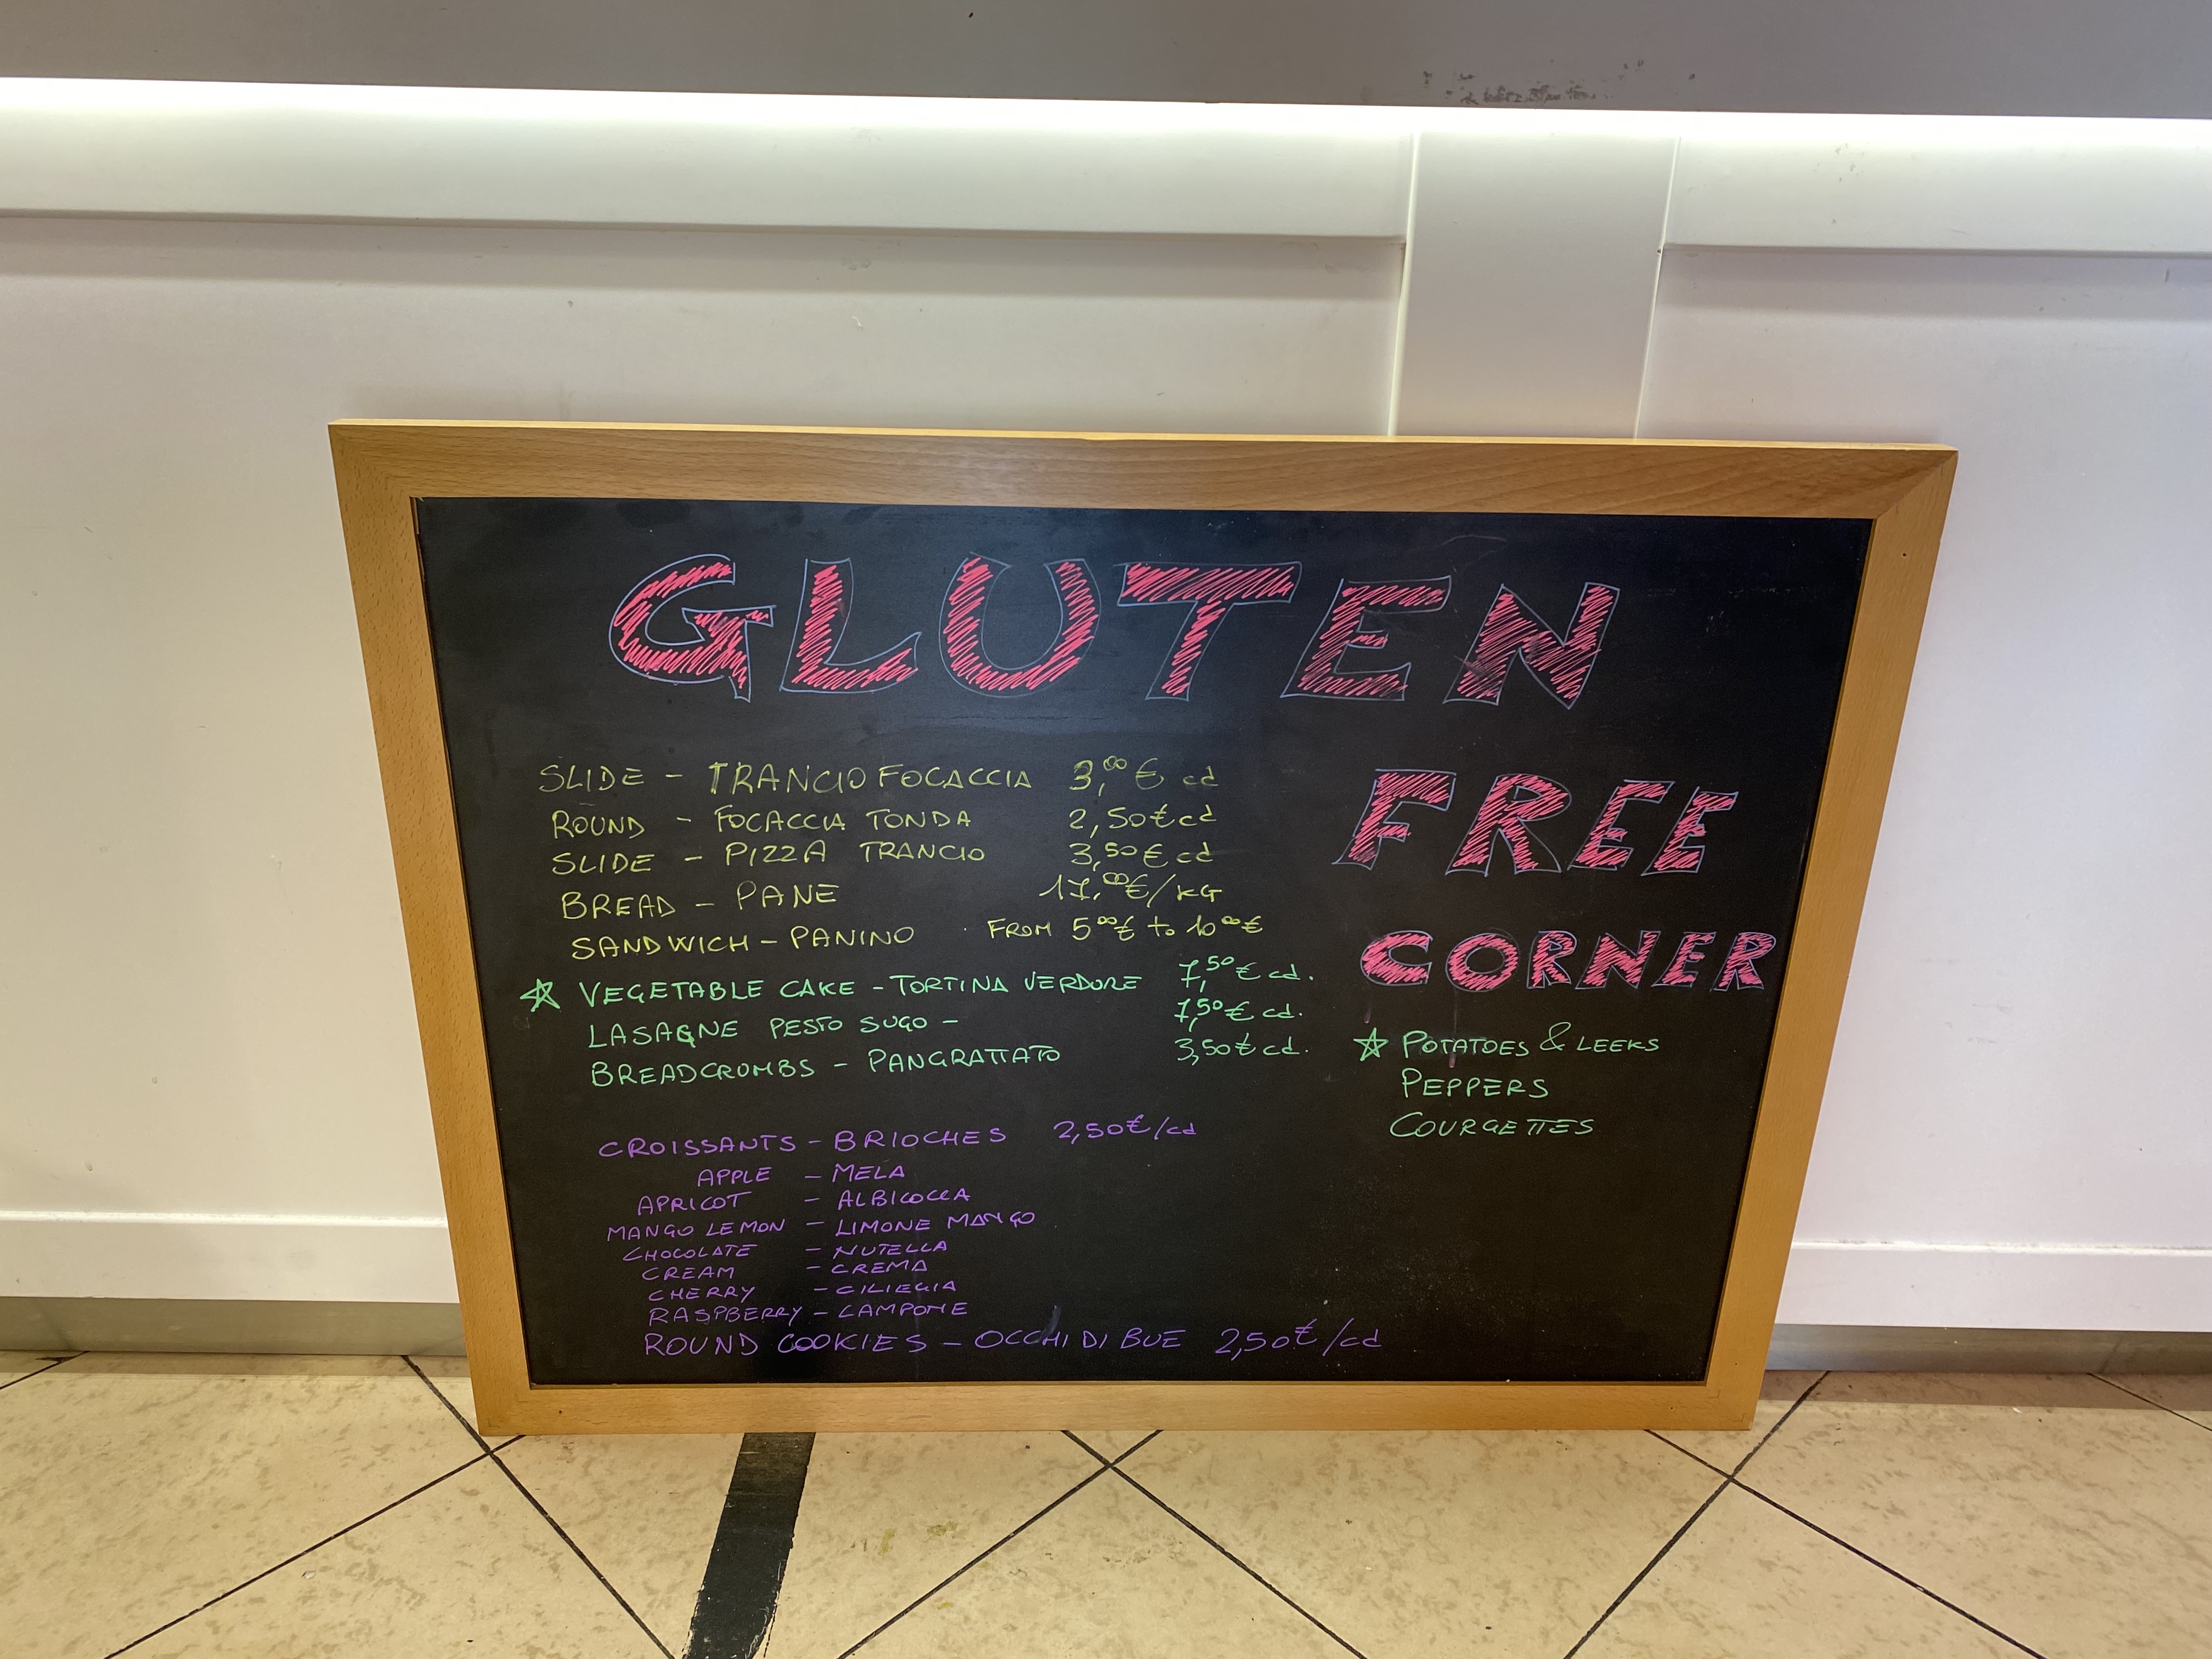 GLUTEN
FREE
CORNER
SLIDE - TRANCIO FOCACCIA 3,00€ cd
ROUND - FOCACCIA TONDA 2,50€ cd
SLIDE - PIZZA TRANCIO 3,50€ cd
BREAD - PANE 17,00€/KG
SANDWICH - PANINO FROM 5,00€ to 10,00€
☆ VEGETABLE CAKE - TORTINA VERDURE 7,50€ cd.
LASAGNE PESTO SUGO - 7,50€ cd.
BREADCROMBS - PANGRATTATO 3,50€ cd.
☆ POTATOES & LEEKS
PEPPERS
COURGETTES
CROISSANTS - BRIOCHES 2,50€/cd
APPLE - MELA
APRICOT - ALBICOCCA
MANGO LEMON - LIMONE MANGO
CHOCOLATE - NUTELLA
CREAM - CREMA
CHERRY - CILIEGIA
RASPBERRY - LAMPONE
ROUND COOKIES - OCCHI DI BUE 2,50€/cd